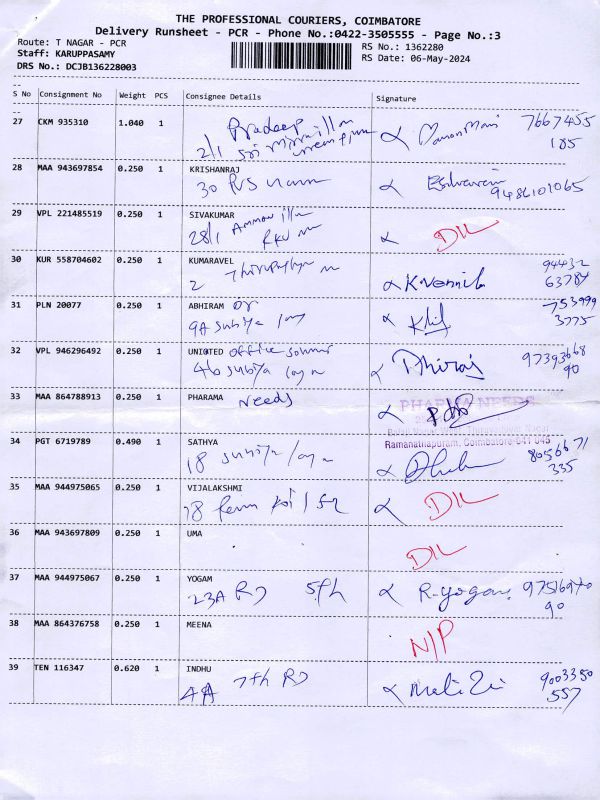 THE PROFESSIONAL COURIERS, COIMBATORE
Delivery Runsheet - PCR - Phone No.:0422-3505555 - Page No.:3
Route: T NAGAR - PCR
RS No.: 1362280
Staff: KARUPPASAMY
RS Date: 06-May-2024
DRS No.: DCJB136228003
S No Consignment No Weight PCS Consignee Details Signature
27 CKM 935310 1.040 1 Pradeep
2/1 Sri
7667455
185
28 MAA 943697854 0.250 1 KRISHANRAJ
30
9486101065
29 VPL 221485519 0.250 1 SIVAKUMAR
28/1 Amman
DIL
30 KUR 558704602 0.250 1 KUMARAVEL
2
K.Vennila
94432
63784
31 PLN 20077 0.250 1 ABHIRAM
9A Subiya
753999
3775
32 VPL 946296492 0.250 1 UNIOTED office
46 Subiya
Dhiraj
97393668
90
33 MAA 864788913 0.250 1 PHARAMA Needs
PHARMA NEEDS
Ramanathapuram, Coimbatore-641 045
34 PGT 6719789 0.490 1 SATHYA
18 Subiya
8056671
335
35 MAA 944975065 0.250 1 VIJALAKSHMI
18
DIL
36 MAA 943697809 0.250 1 UMA
DIL
37 MAA 944975067 0.250 1 YOGAM
23A RD 5th
R-yogam
97516970
90
38 MAA 864376758 0.250 1 MEENA
N/P
39 TEN 116347 0.620 1 INDHU
4A 7th RD
9003350
557